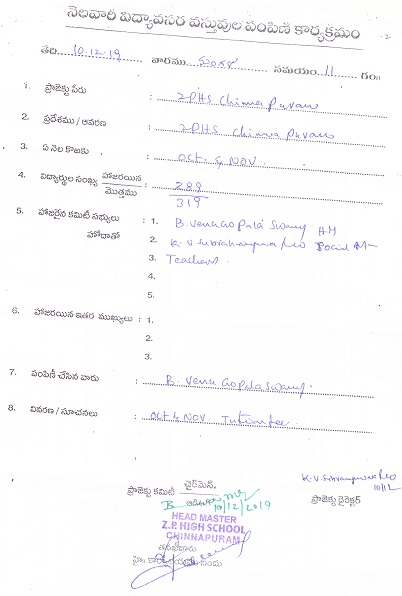 నెలవారీ విద్యావసర వస్తువుల పంపిణి కార్యక్రమం
తేది 10.12.19 వారము మంగళ సమయం 11 గం॥
1. ప్రాజెక్టు పేరు : ZPHS Chinnapuram
2. ప్రదేశము / ఆవరణ : ZPHS Chinnapuram
3. ఏ నెల కొఱకు : Oct & NOV
4. విద్యార్థుల సంఖ్య హాజరయిన / మొత్తము : 289 / 319
5. హాజరైన కమిటీ సభ్యులు : 1. B. Venu Gopala Swamy HM
హోదాతో 2. K. V Subrahmanya Rao Social
3. Teachers.
4.
5.
6. హాజరయిన ఇతర ముఖ్యులు : 1.
2.
3.
7. పంపిణీ చేసిన వారు : B. Venu Gopala Swamy.
8. వివరణ / సూచనలు : Oct & NOV. Tution fee.
ప్రాజెక్టు కమిటీ ఛైర్మెన్.
K. V. Subrahmanya Rao
10/12
ప్రాజెక్టు డైరెక్టర్
10/12/2019
HEAD MASTER
Z.P. HIGH SCHOOL
CHINNAPURAM